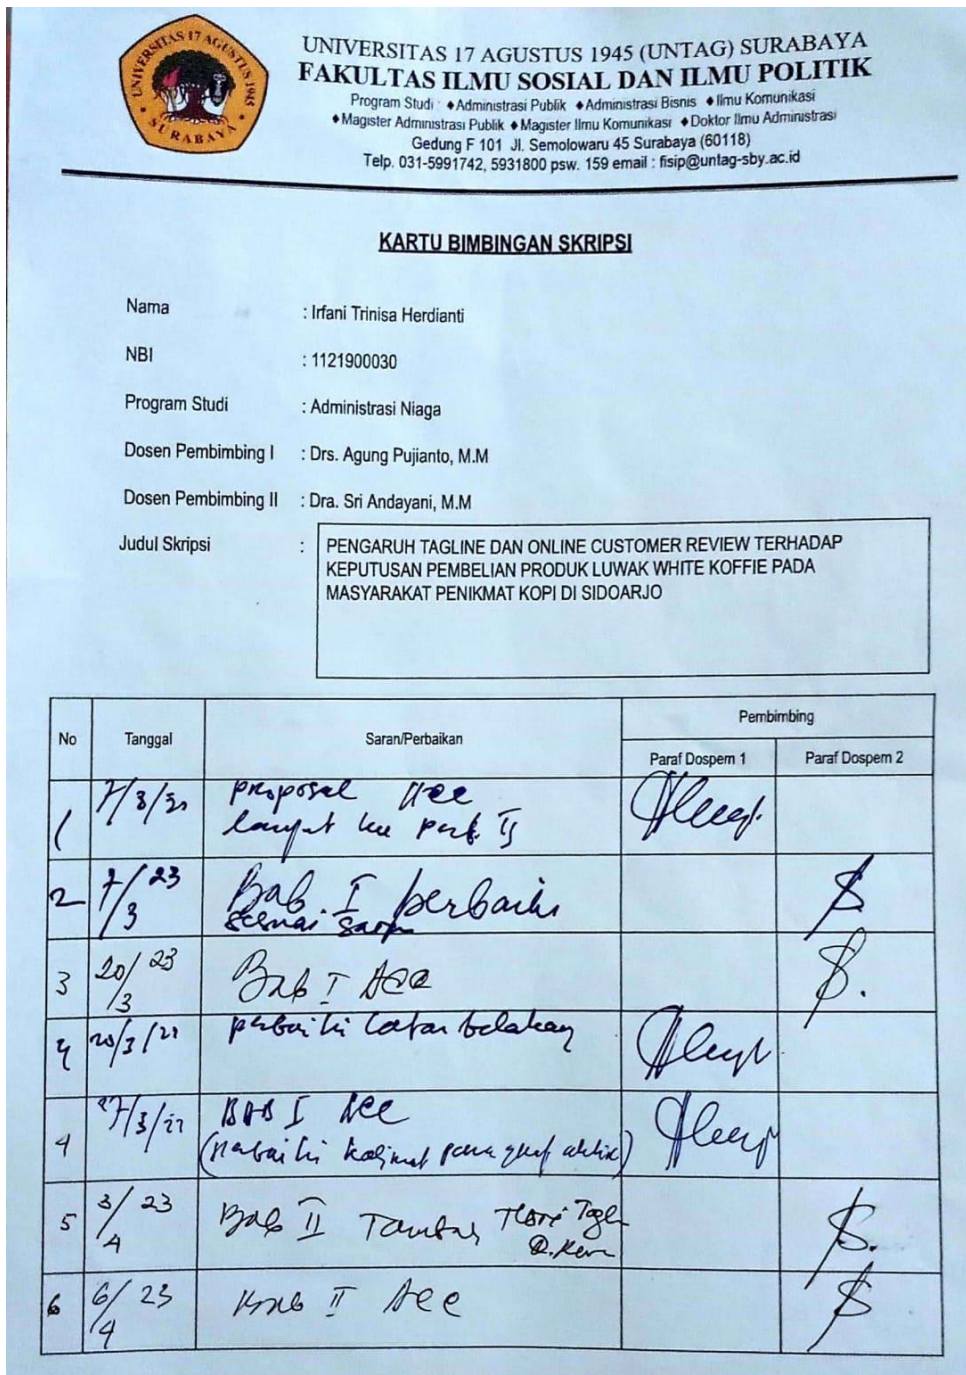 UNIVERSITAS 17 AGUSTUS 1945
SURABAYA
UNIVERSITAS 17 AGUSTUS 1945 (UNTAG) SURABAYA
FAKULTAS ILMU SOSIAL DAN ILMU POLITIK
Program Studi : ♦Administrasi Publik ♦Administrasi Bisnis ♦Ilmu Komunikasi
♦Magister Administrasi Publik ♦Magister Ilmu Komunikasi ♦Doktor Ilmu Administrasi
Gedung F 101 Jl. Semolowaru 45 Surabaya (60118)
Telp. 031-5991742, 5931800 psw. 159 email : fisip@untag-sby.ac.id
KARTU BIMBINGAN SKRIPSI
Nama : Irfani Trinisa Herdianti
NBI : 1121900030
Program Studi : Administrasi Niaga
Dosen Pembimbing I : Drs. Agung Pujianto, M.M
Dosen Pembimbing II : Dra. Sri Andayani, M.M
Judul Skripsi : PENGARUH TAGLINE DAN ONLINE CUSTOMER REVIEW TERHADAP
KEPUTUSAN PEMBELIAN PRODUK LUWAK WHITE KOFFIE PADA
MASYARAKAT PENIKMAT KOPI DI SIDOARJO
No Tanggal Saran/Perbaikan Pembimbing
Paraf Dospem 1 Paraf Dospem 2
1 proposal Acc
ke
2 7/3 23 Bab I perbaiki
sesuai saran
3 20/3 23 Bab I Acc
4 perbaiki latar belakang
4 BAB I Acc
(perbaiki kalimat
5 3/4 23 Bab II Tambah Teori
6 6/4 23 Bab II Acc